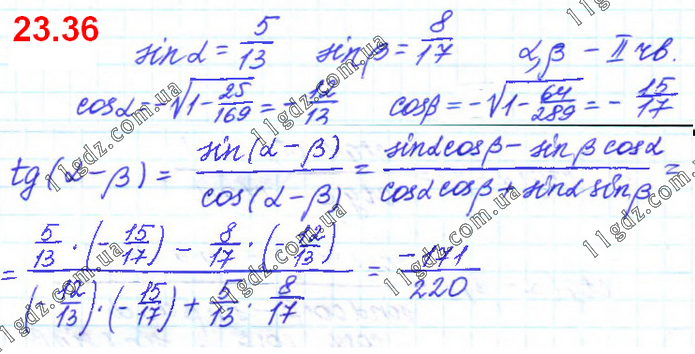 23.36
sinα = 5/13 sinβ = 8/17 α,β – II чв.
cosα = -√(1 - 25/169) = -12/13 cosβ = -√(1 - 64/289) = -15/17
tg(α-β) = sin(α-β)/cos(α-β) = (sinα cosβ - sinβ cosα)/(cosα cosβ + sinα sinβ) =
= (5/13 · (-15/17) - 8/17 · (-12/13))/((-12/13) · (-15/17) + 5/13 · 8/17) = -171/220
11gdz.com.ua
11gdz.com.ua
11gdz.com.ua
11gdz.com.ua
11gdz.com.ua
11gdz.com.ua